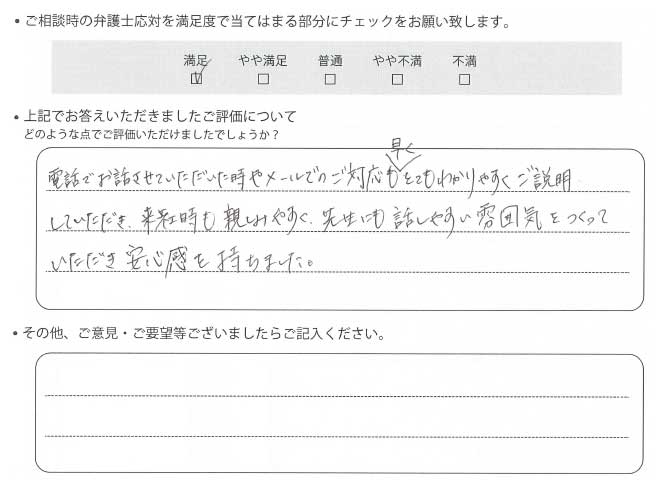 • ご相談時の弁護士応対を満足度で当てはまる部分にチェックをお願い致します。
満足 やや満足 普通 やや不満 不満
☑ □ □ □ □
• 上記でお答えいただきましたご評価について
どのような点でご評価いただけましたでしょうか？
早く
電話でお話させていただいた時やメールでのご対応もとてもわかりやすくご説明
していただき、来社時も親しみやすく、先生にも話しやすい雰囲気をつくって
いただき安心感を持ちました。
• その他、ご意見・ご要望等ございましたらご記入ください。